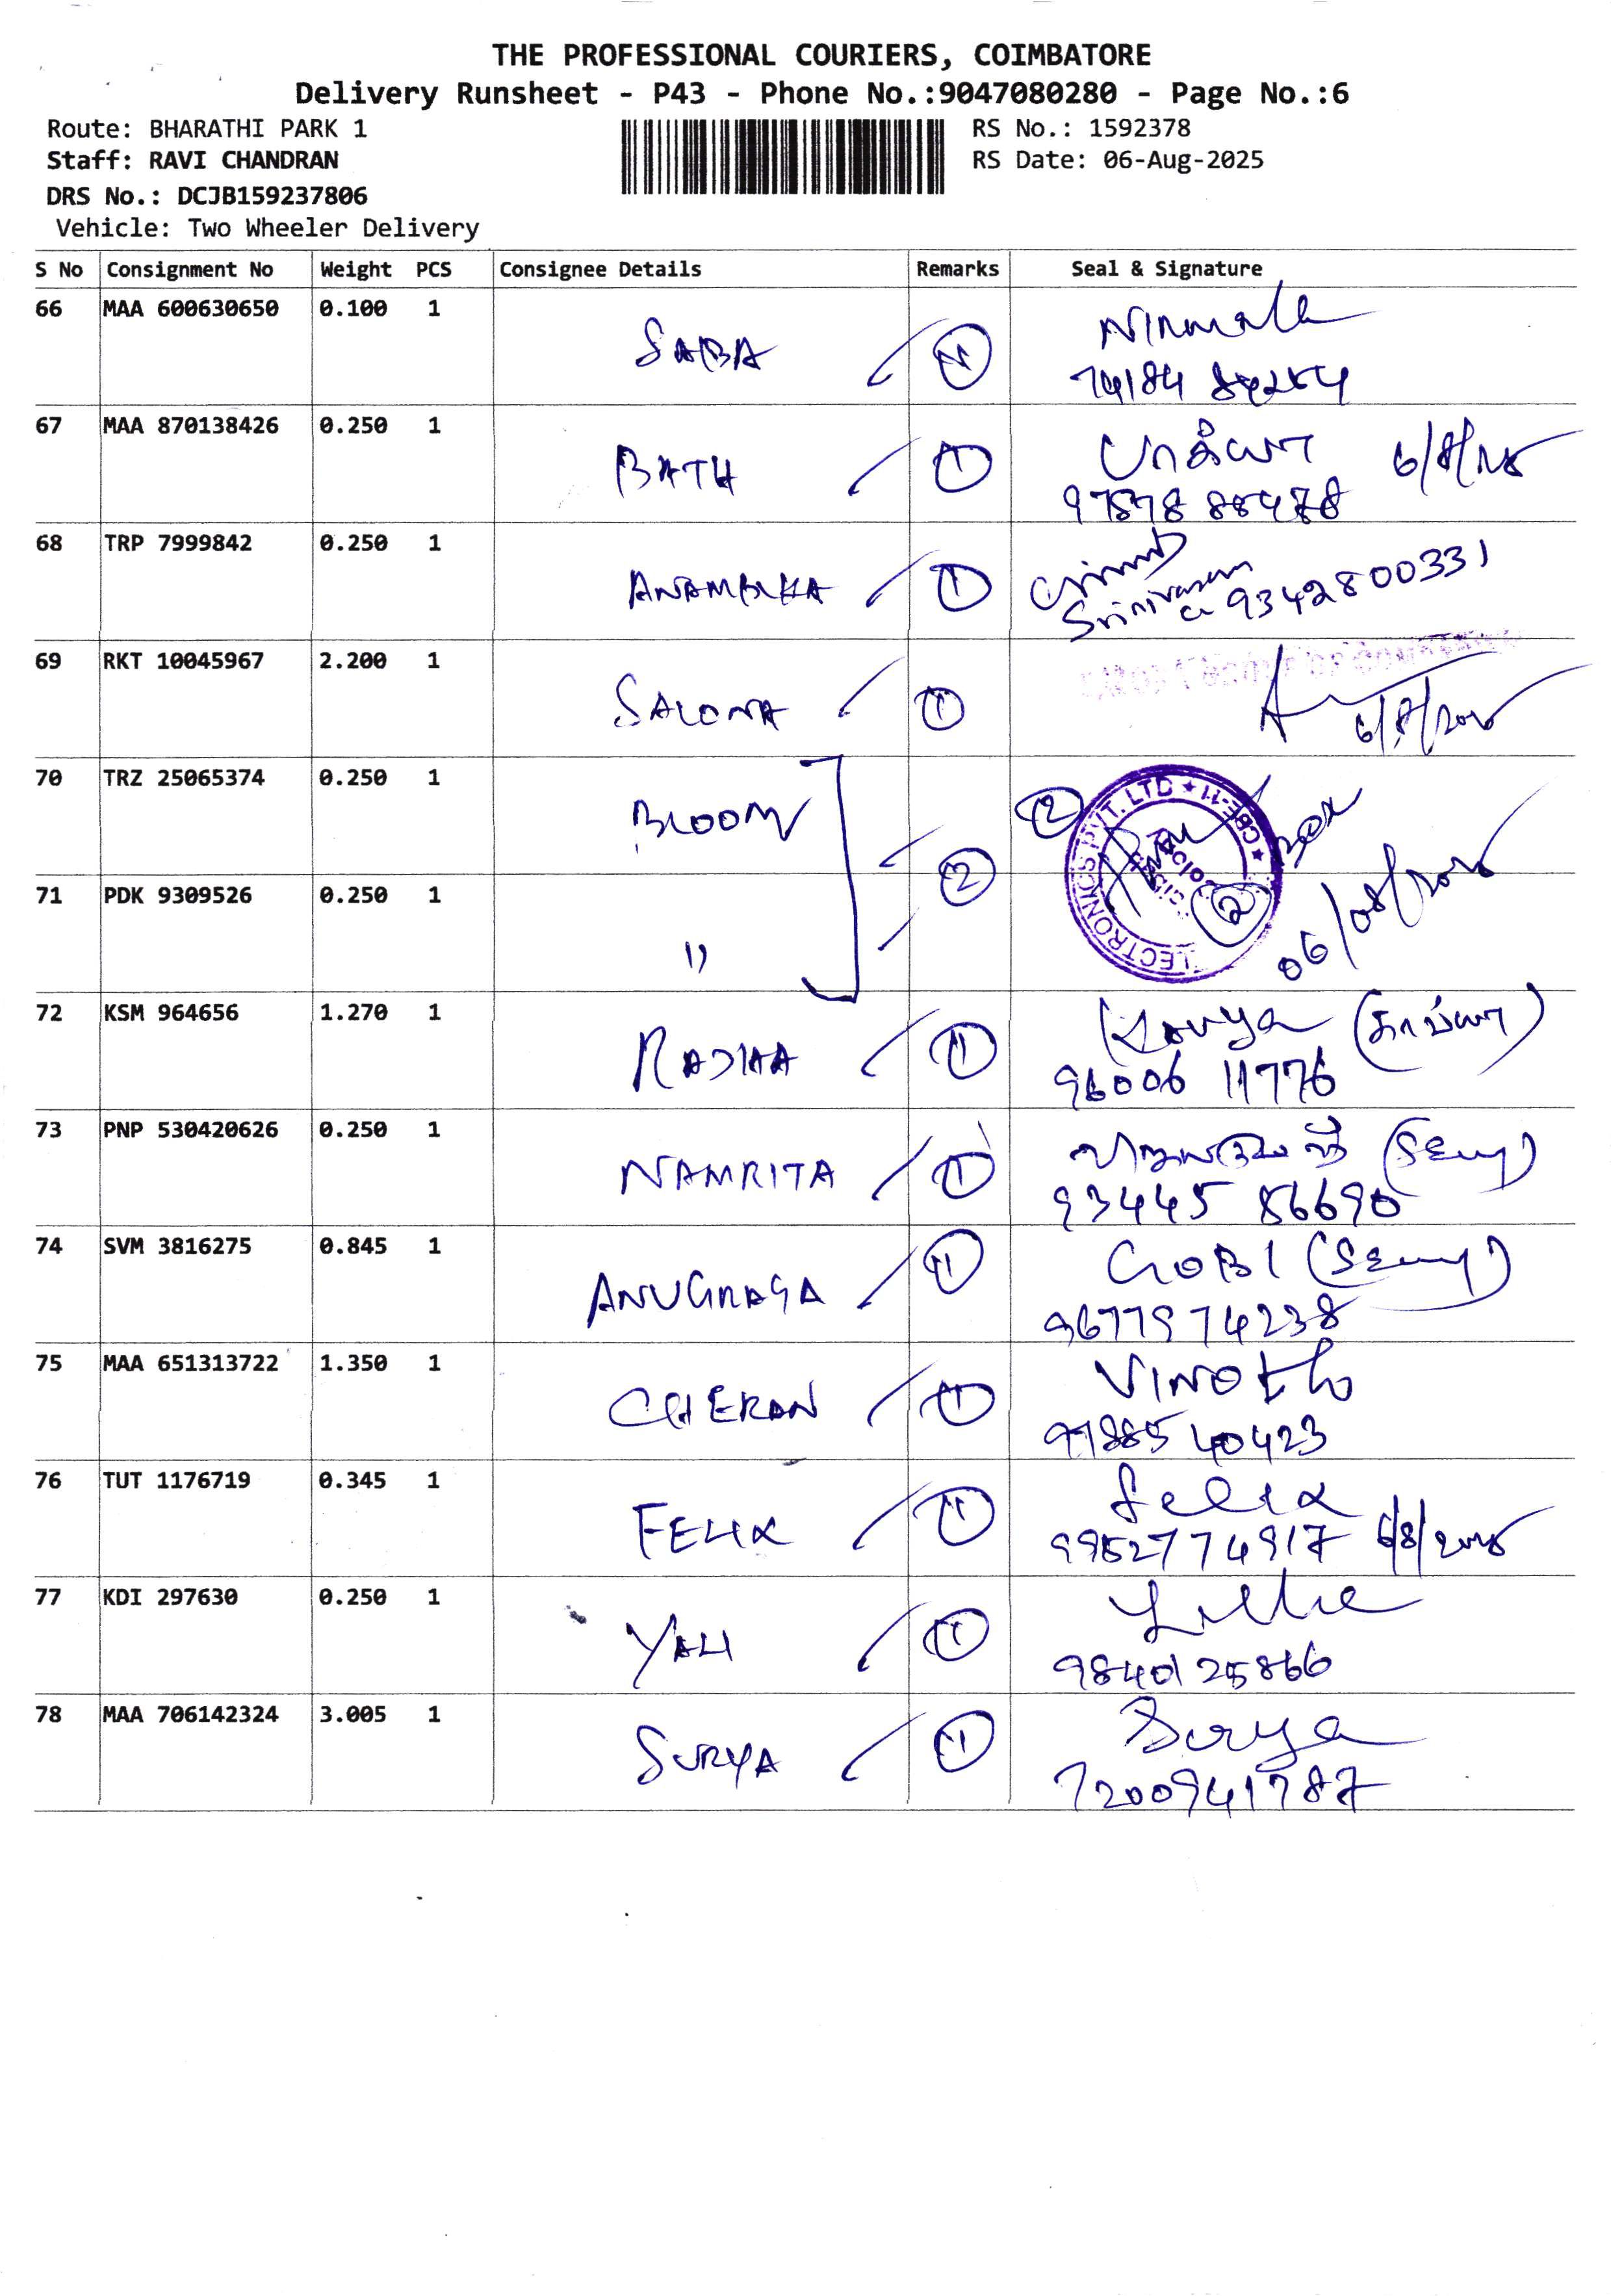 THE PROFESSIONAL COURIERS, COIMBATORE
Delivery Runsheet - P43 - Phone No.:9047080280 - Page No.:6
Route: BHARATHI PARK 1
RS No.: 1592378
Staff: RAVI CHANDRAN
RS Date: 06-Aug-2025
DRS No.: DCJB159237806
Vehicle: Two Wheeler Delivery
S No Consignment No Weight PCS Consignee Details Remarks Seal & Signature
66 MAA 600630650 0.100 1
SABA Nirmala
74184
67 MAA 870138426 0.250 1
BATH 1 பாக்யா 6/8/25
97878 88478
68 TRP 7999842 0.250 1
ANAMBIKA 1
Srinivasan
9342800331
69 RKT 10045967 2.200 1
SALONA 1
6/8/2025
70 TRZ 25065374 0.250 1
BLOOM 2 2
LECTRONICS PVT. LTD ★ CBE-11 ★
71 PDK 9309526 0.250 1
" 2
06/08/2025
72 KSM 964656 1.270 1
RADHA 1 Kavya (காவ்யா)
96006 11776
73 PNP 530420626 0.250 1
NAMRITA 1
93445 86690
74 SVM 3816275 0.845 1
ANUGRAGA 1 GOBI
9677974238
75 MAA 651313722 1.350 1
CHERAN 1 VINOth
97885 40423
76 TUT 1176719 0.345 1
FELIX 1 Felix
9952774917 6/8/2025
77 KDI 297630 0.250 1
YALI 1
9840125866
78 MAA 706142324 3.005 1
SURYA 1 Surya
7200941787